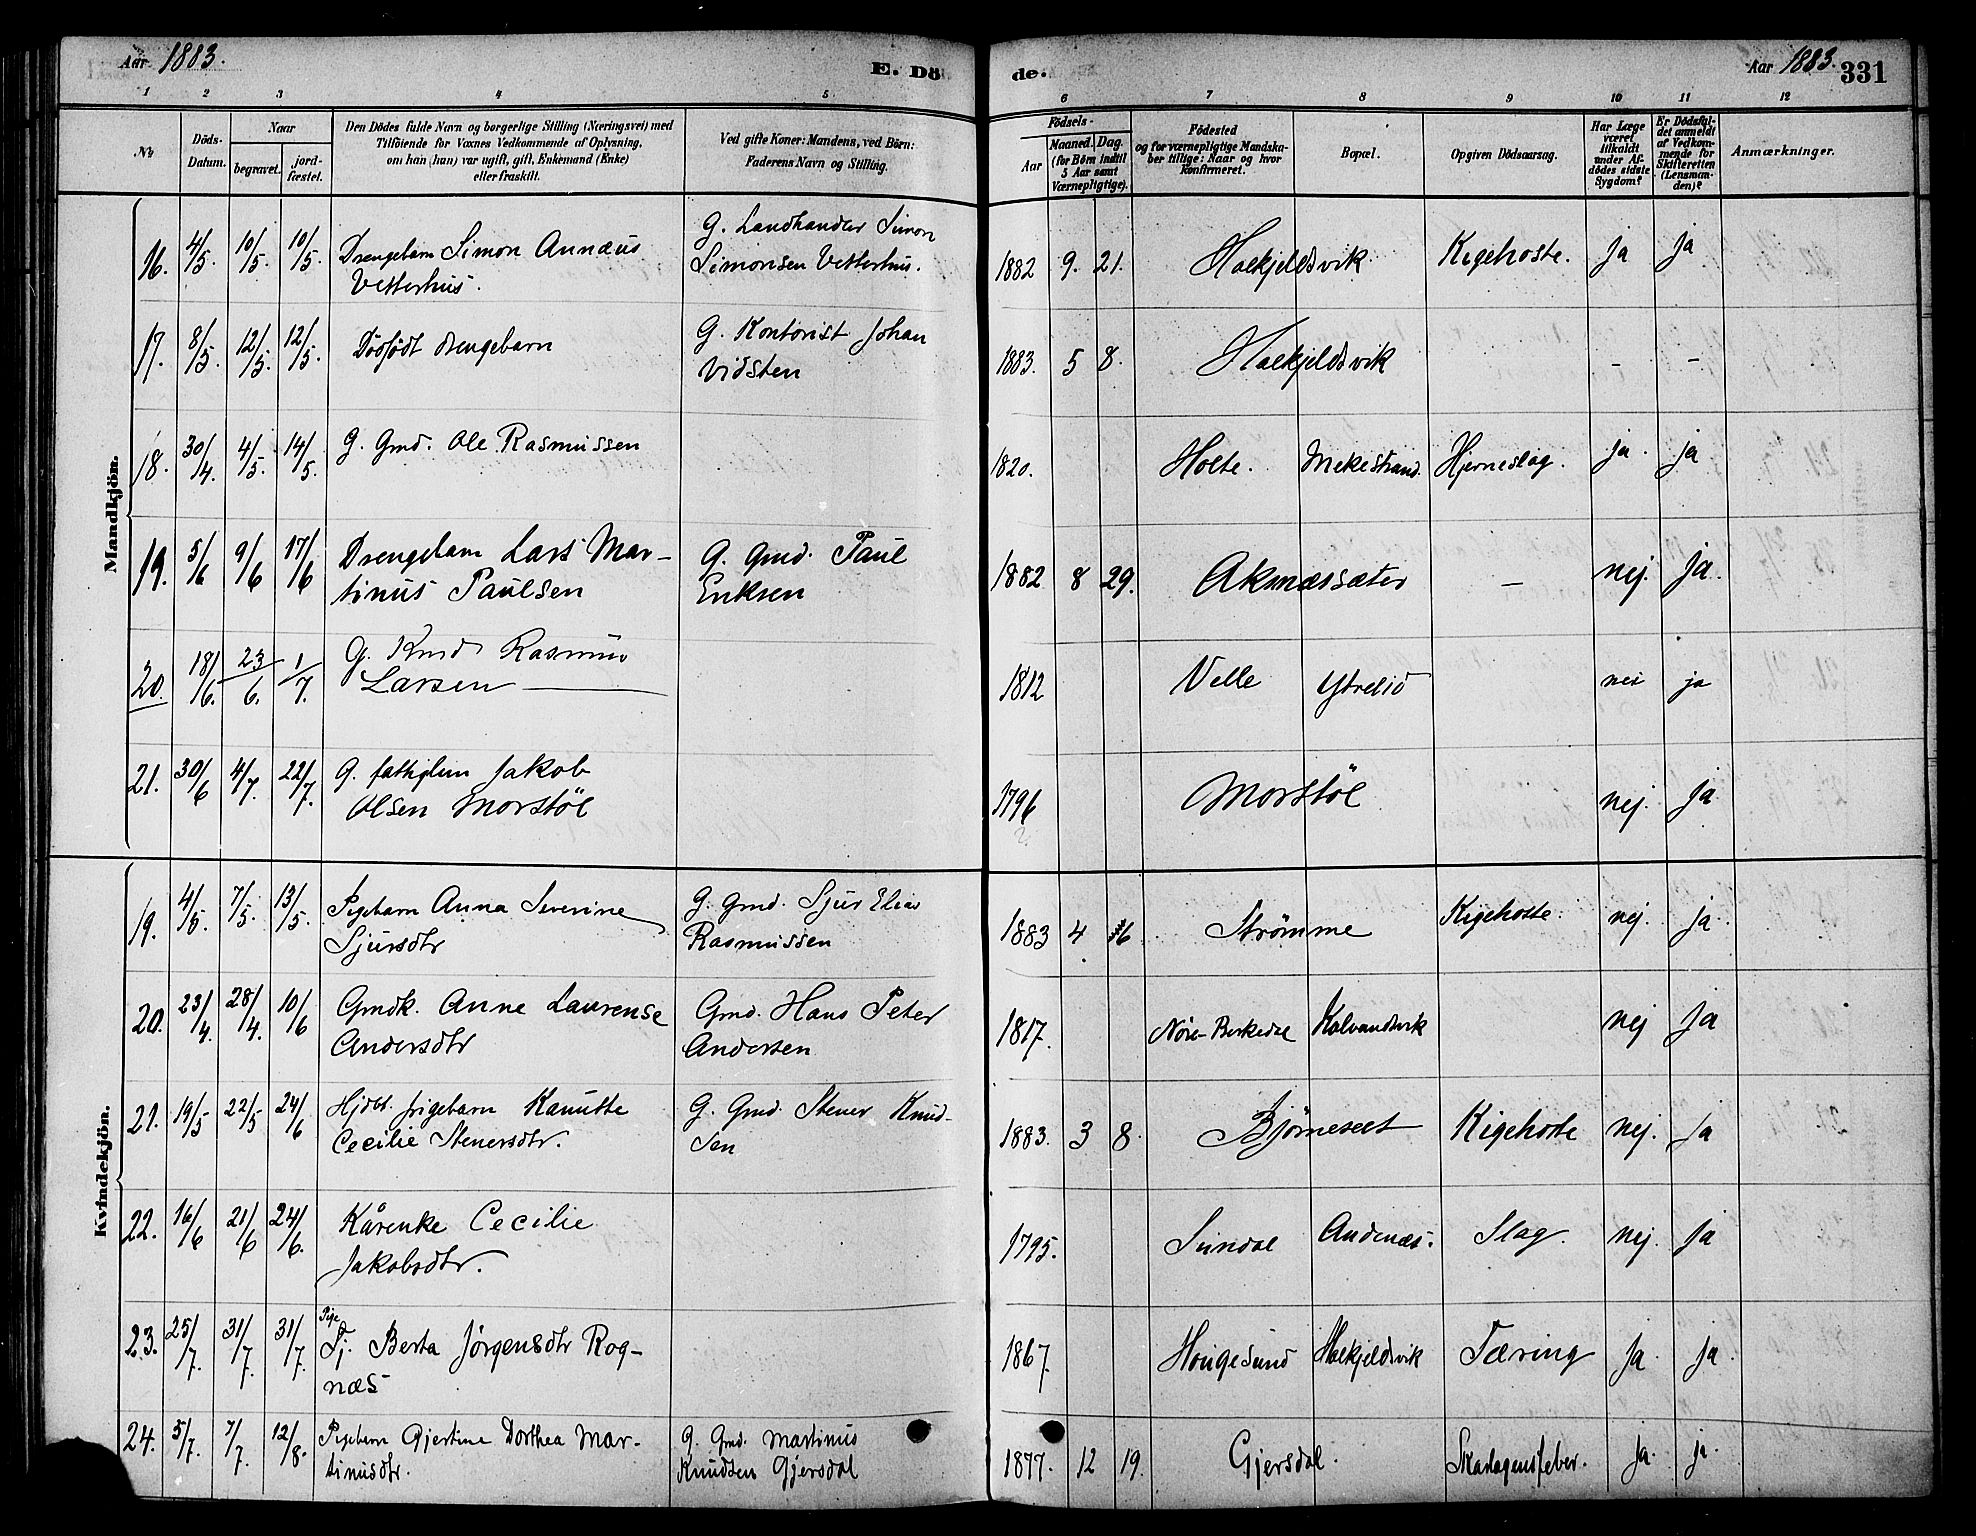 Aar 1883.
E. Dö
de.
Aar 1883. 331
1 2 3 4 5 6 7 8 9 10 11 12
No
Döds-Datum.
Naar
begravet.
jord-fæstet.
Den Dödes fulde Navn og borgerlige Stilling (Næringsvei) med
Tilföiende for Voxnes Vedkommende af Oplysning,
om han (hun) var ugift, gift, Enkemand (Enke)
eller fraskilt.
Ved gifte Koner: Mandens, ved Börn:
Faderens Navn og Stilling.
Födsels-
Aar
Maaned. Dag.
(for Börn indtil
5 Aar samt
Værnepligtige).
Födested
og for værnepligtige Mandska-
ber tillige: Naar og hvor
konfirmeret.
Bopæl.
Opgiven Dödsaarsag.
Har Læge
været
tilkaldt
under Af-
dödes sidste
Sygdom?
Er Dödsfal-
det anmeldt
af Vedkom-
mende for
Skifteretten
(Lensman-
den)?
Anmærkninger.
Mandkjön.
16. 4/5. 10/5. 10/5. Drengebarn Simon Annæus
Vetterhus.
G. Landhandler Simon
Simonsen Vetterhus.
1882 9. 21. Holkjeldsvik Kigehoste. ja ja
17. 8/5. 12/5. 12/5. Dödfödt drengebarn
G. Kontorist Johan
Vidsten
1883. 5 8. Holkjeldsvik - -
18. 30/4. 4/5. 14/5. G. Gmd. Ole Rasmussen
1820. Holte. Mekestrand. Hjerneslag. ja. ja
19. 5/6 9/6 17/6 Drengebarn Lars Mar-
tinus Paulsen
G. Gmd. Paul
Eriksen
1882 8 29. Aksnæssæter — nej. ja.
20. 18/6. 23/6. 1/7. G. Kmd Rasmus
Larsen
1812 Velle Ytrelid nei ja
21. 30/6 4/7. 22/7. G. fattiglem Jakob
Olsen Morstöl
1796 Morstöl nej. ja
Kvindekjön.
19. 4/5. 7/5. 13/5. Pigebarn Anna Severine
Sjursdtr
G. Gmd. Sjur Elias
Rasmussen
1883 4 6 Strømme Kigehoste. nej. ja.
20. 23/4. 28/4. 10/6 Gmdk. Anne Laurense
Andersdtr
Gmd. Hans Peter
Andersen
1817. Nöre-Berkedal Kalvandsvik nej ja
21. 19/5 22/5 24/6 Hjdbt. pigebarn Kanutte
Cecilie Stenersdtr.
G. Gmd. Stener Knud-
sen
1883. 3 8. Bjørneset Kigehoste nej. ja
22. 16/6 21/6 24/6. Kårenke Cecilie
Jakobsdtr.
1795. Sundal Andenæs. Slag. nej. ja
23. 25/7. 31/7. 31/7. Pige
Tj. Berta Jörgensdtr Rog-
næs
1867. Hougesund Holkjeldsvik Tæring ja. ja.
24. 5/7. 7/7. 12/8. Pigebarn Gjertine Dorthea Mar-
tinusdtr.
G. Gmd. Martinus
Knudsen Gjersdal
1877. 12 19. Gjersdal. Skarlagensfeber. ja. ja.